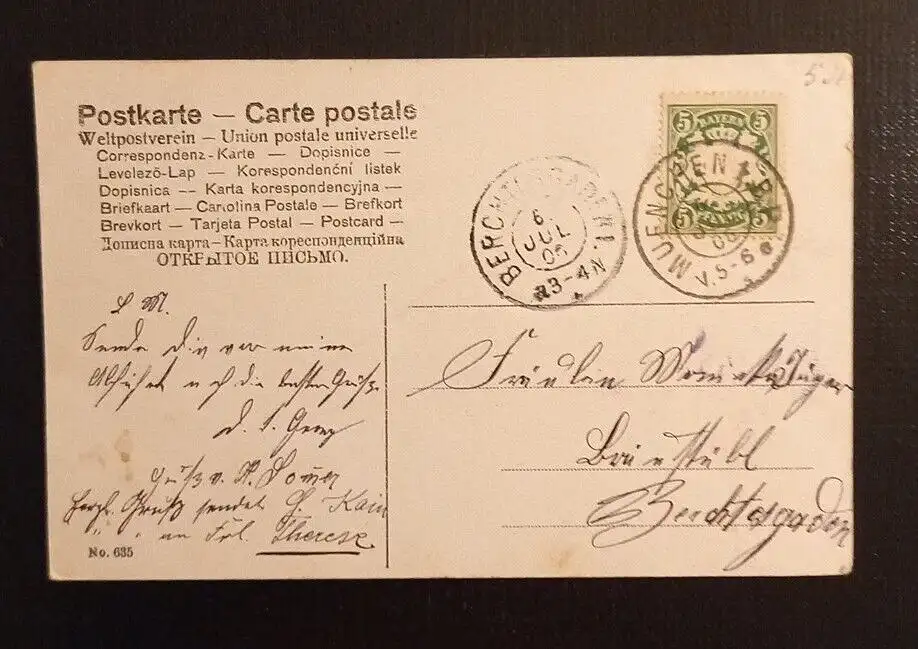 Postkarte — Carte postale
Weltpostverein — Union postale universelle
Correspondenz-Karte — Dopisnice —
Levelező-Lap — Korespondenční listek
Dopisnica — Karta korespondencyjna —
Briefkaart — Cartolina Postale — Brefkort
Brevkort — Tarjeta Postal — Postcard —
Дописна карта — Карта кореспонденційна
ОТКРЫТОЕ ПИСЬМО.
5 5
BAYERN
5 5
MUENCHEN
V.5-6
BERCHTESGADEN I.
6
JUL
06
3-4 N
L. M.
Sende dir vor meiner
Abfahrt noch die besten Grüße
d. l. Georg
Gruß v.
Herzl. Gruß sendet Kain
" " an Frl. Therese
No. 635
Fräulein
Bräustübl
Berchtesgaden